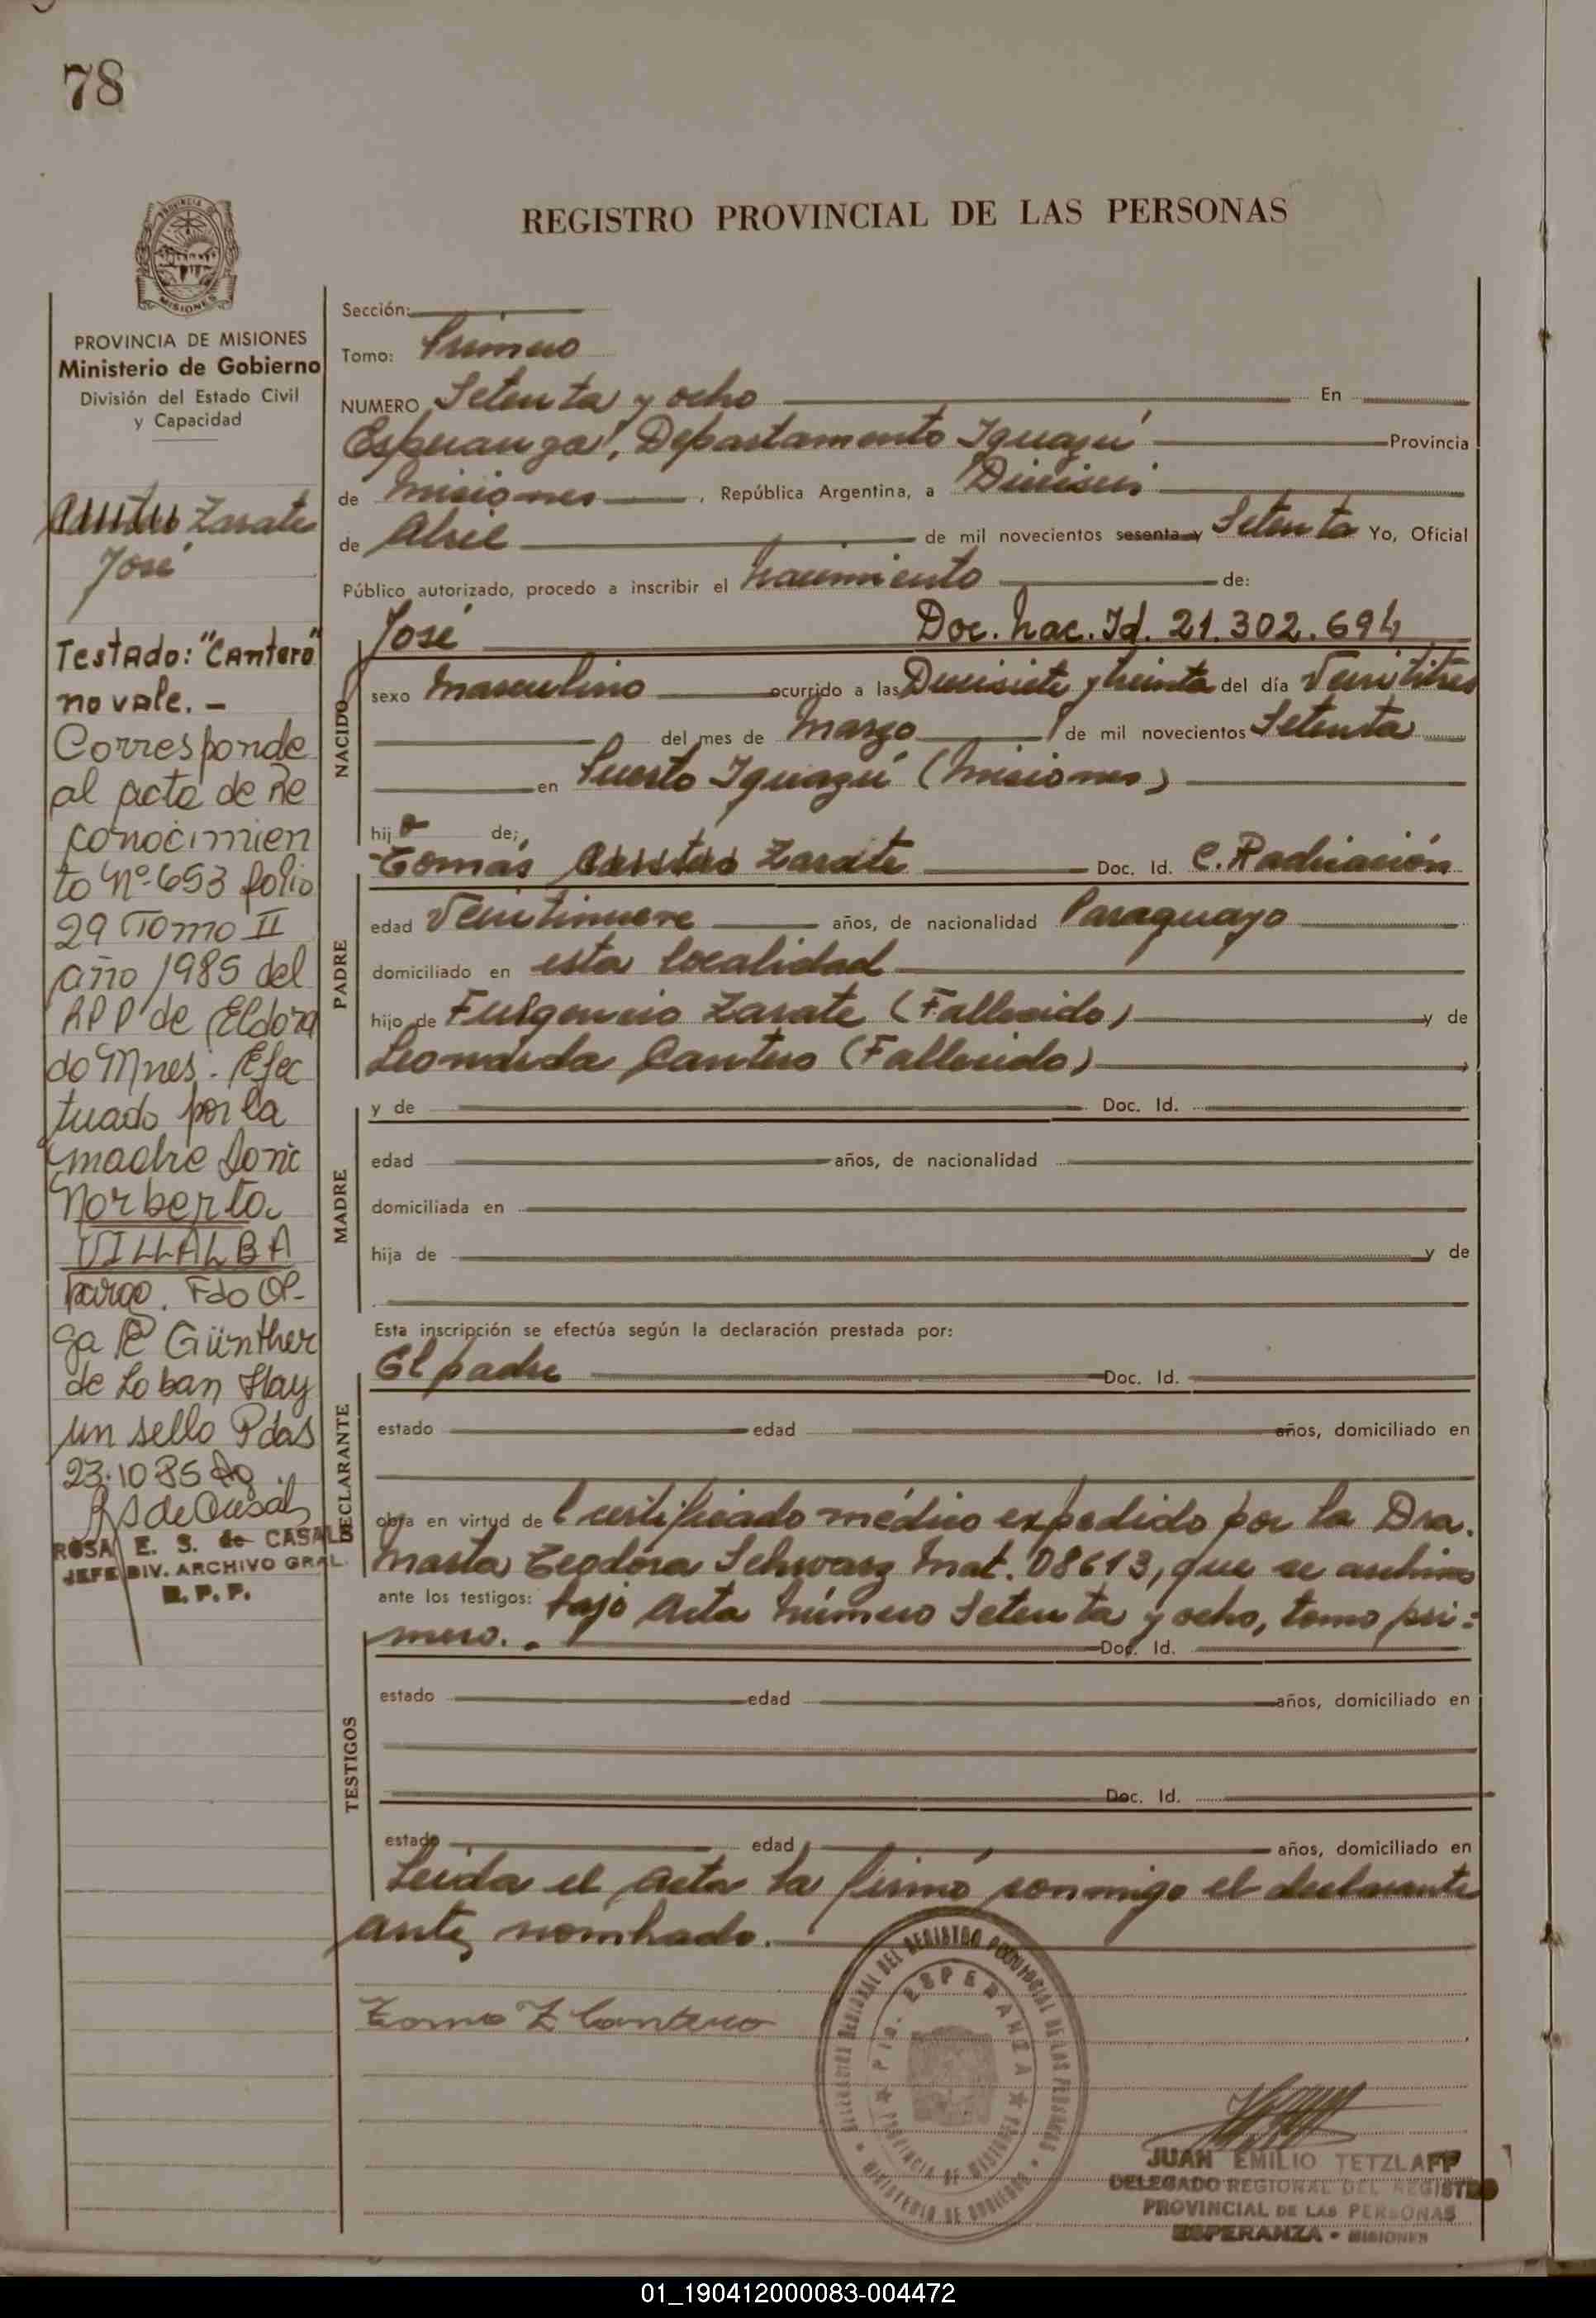 78
REGISTRO PROVINCIAL DE LAS PERSONAS
MISIONES
PROVINCIA DE MISIONES
Ministerio de Gobierno
División del Estado Civil
y Capacidad
Zarate
José
Testado: "Cantero"
no vale. -
Corresponde
al acta de Re
conocimien
to Nº 653 folio
29 Tomo II
año 1985 del
RPP de Eldora
do Mnes. Efec
tuado por la
madre
Norberta
VILLALBA
Fdo
Günther
de Loban Hay
un sello Pdas
23.10 85
ROSA E. S. de CASALS
JEFE DIV. ARCHIVO GRAL.
R. P. P.
Sección:
Tomo: Primero
NUMERO Setenta y ocho En
Esperanza, Departamento Iguazú Provincia
de Misiones, República Argentina, a Dieciseis
de Abril de mil novecientos sesenta y Setenta Yo, Oficial
Público autorizado, procedo a inscribir el Nacimiento de:
NACIDO
José Doc. Nac. Id. 21.302.694
sexo Masculino ocurrido a las Diecisiete y treinta del día Veintitres
del mes de Marzo de mil novecientos Setenta
en Puerto Iguazú (Misiones)
hijo de;
PADRE
Tomás Zarate Doc. Id. C. Radicación
edad Veintinueve años, de nacionalidad Paraguayo
domiciliado en esta localidad
hijo de Fulgencio Zarate (Fallecido) y de
Leonarda Cantero (Fallecido)
MADRE
y de Doc. Id.
edad años, de nacionalidad
domiciliada en
hija de y de
Esta inscripción se efectúa según la declaración prestada por:
DECLARANTE
El padre Doc. Id.
estado edad años, domiciliado en
obra en virtud de Certificado médico expedido por la Dra.
Marta Teodora Schwarz Mat. 08613, que se archiva
ante los testigos: bajo Acta Número Setenta y ocho, tomo pri=
mero. Doc. Id.
TESTIGOS
estado edad años, domiciliado en
Doc. Id.
estado edad años, domiciliado en
Leída el Acta la firmó conmigo el declarante
antes nombrado.
Tomas Z Cantero
DELEGACION REGIONAL DEL REGISTRO PROVINCIAL DE LAS PERSONAS
MINISTERIO DE GOBIERNO
PTO. ESPERANZA
PROVINCIA DE MISIONES
JUAN EMILIO TETZLAFF
DELEGADO REGIONAL DEL REGISTRO
PROVINCIAL DE LAS PERSONAS
ESPERANZA - MISIONES
01_190412000083-004472